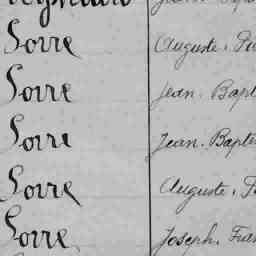 Sorre Auguste,
Sorre Jean. Bapt
Sorre Jean. Bapte
Sorre Auguste,
Sorre Joseph, Fran